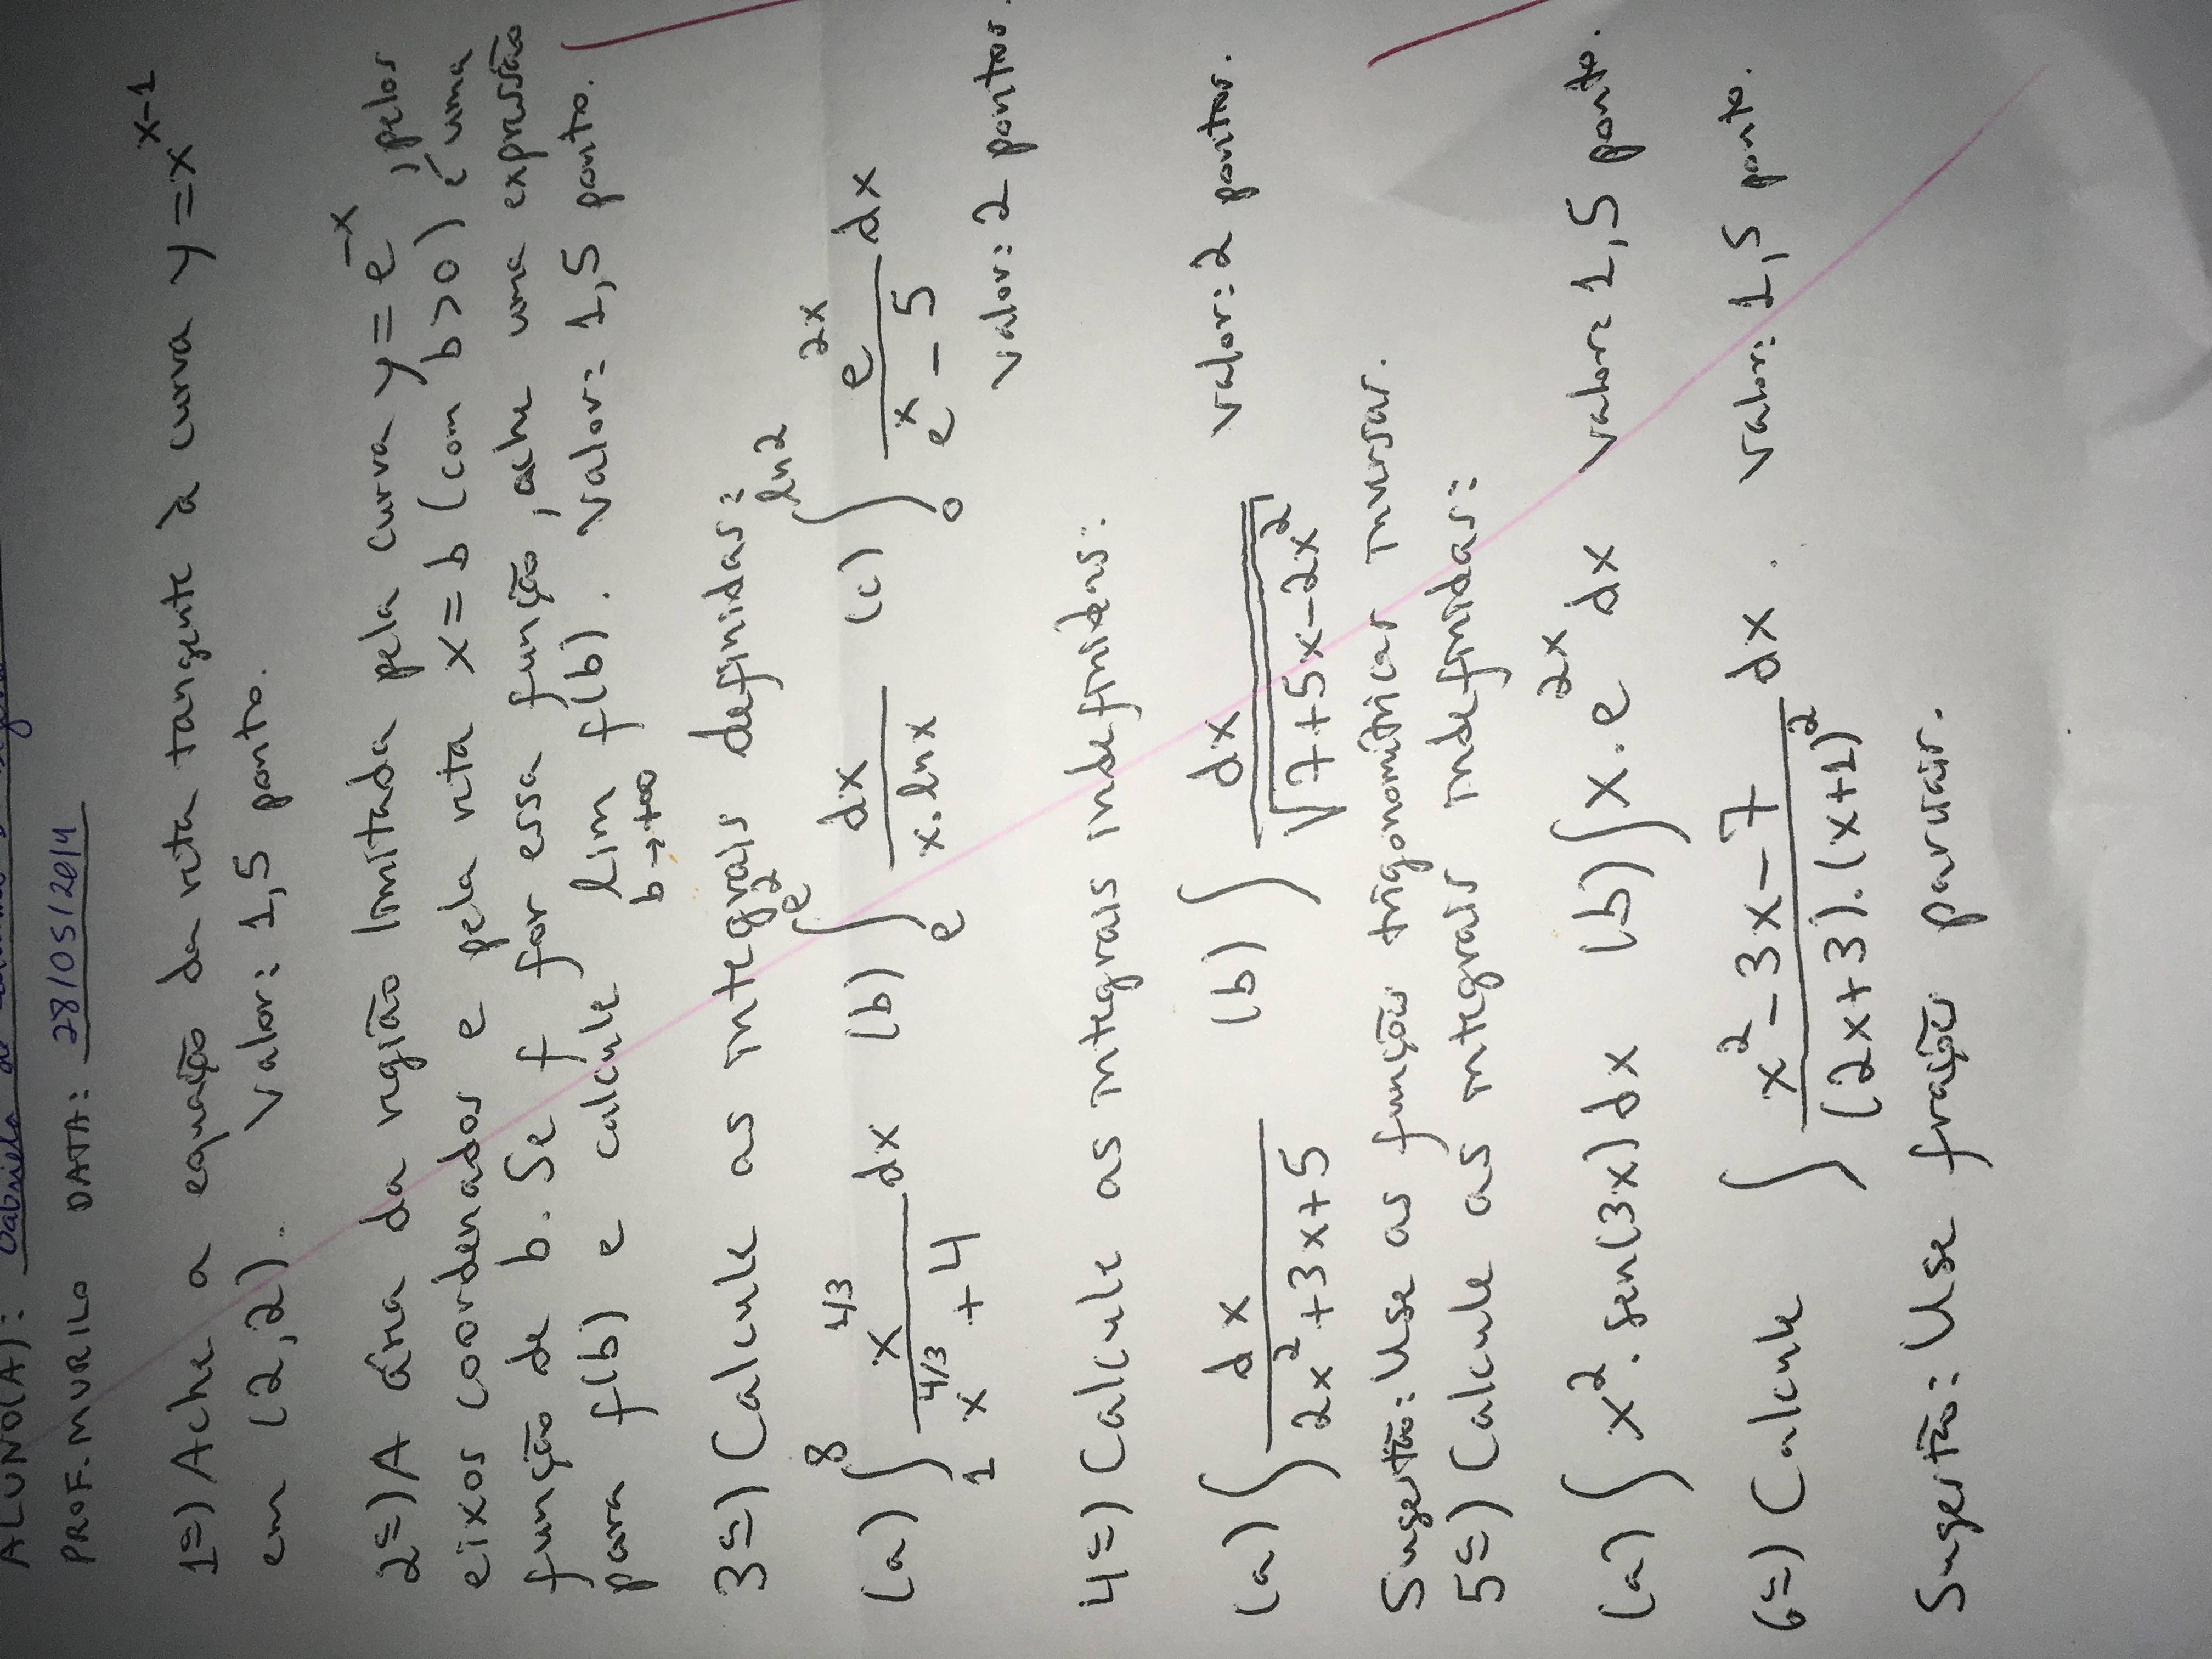 ALUNO(A): Gabriela de
PROF. MURILO DATA: 28/05/2014
1ª) Ache a equação da reta tangente à curva y = x^(x-1)
em (2,2). Valor: 1,5 ponto.
2ª) A área da região limitada pela curva y = e^(-x), pelos
eixos coordenados e pela reta x = b (com b > 0) é uma
função de b. Se f for essa função, ache uma expressão
para f(b) e calcule lim b→+∞ f(b). Valor: 1,5 ponto.
3ª) Calcule as integrais definidas:
(a) ∫₁⁸ x^(4/3) / (x^(4/3) + 4) dx (b) ∫ₑ^(e²) dx / (x.ln x) (c) ∫₀^(ln2) e^(2x) / (e^x - 5) dx
Valor: 2 pontos.
4ª) Calcule as integrais indefinidas:
(a) ∫ dx / (2x² + 3x + 5) (b) ∫ dx / √(7+5x-2x²) Valor: 2 pontos.
Sugestão: Use as funções trigonométricas inversas.
5ª) Calcule as integrais indefinidas:
(a) ∫ x². sen(3x) dx (b) ∫ x. e^(2x) dx Valor: 1,5 ponto.
6ª) Calcule ∫ (x² - 3x - 7) / ((2x+3).(x+1)²) dx. Valor: 1,5 ponto.
Sugestão: Use frações parciais.